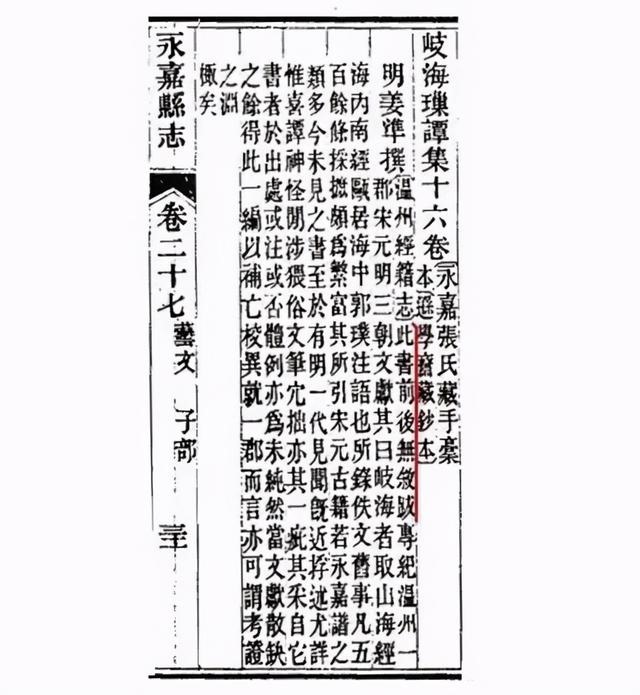 岐海璅譚集十六卷
永嘉張氏藏手稾
本遜學齋藏鈔本
明姜準撰
溫州經籍志此書前後無敘跋專紀溫州一
郡宋元明三朝文獻其曰岐海者取山海經
海内南經甌居海中郭璞注語也所錄佚文舊事凡五
百餘條採摭頗爲繁富其所引宋元古籍若永嘉譜之
類多今未見之書至於有明一代見聞旣近捊述尤詳
惟喜譚神怪閒涉猥俗文筆冗拙亦其一疵其采自它
書者於出處或注或否體例亦爲未純然當文獻散缺
之餘得此一編以補亡校異就一郡而言亦可謂考證
之淵
棷矣
永嘉縣志
卷二十七
藝文
子部